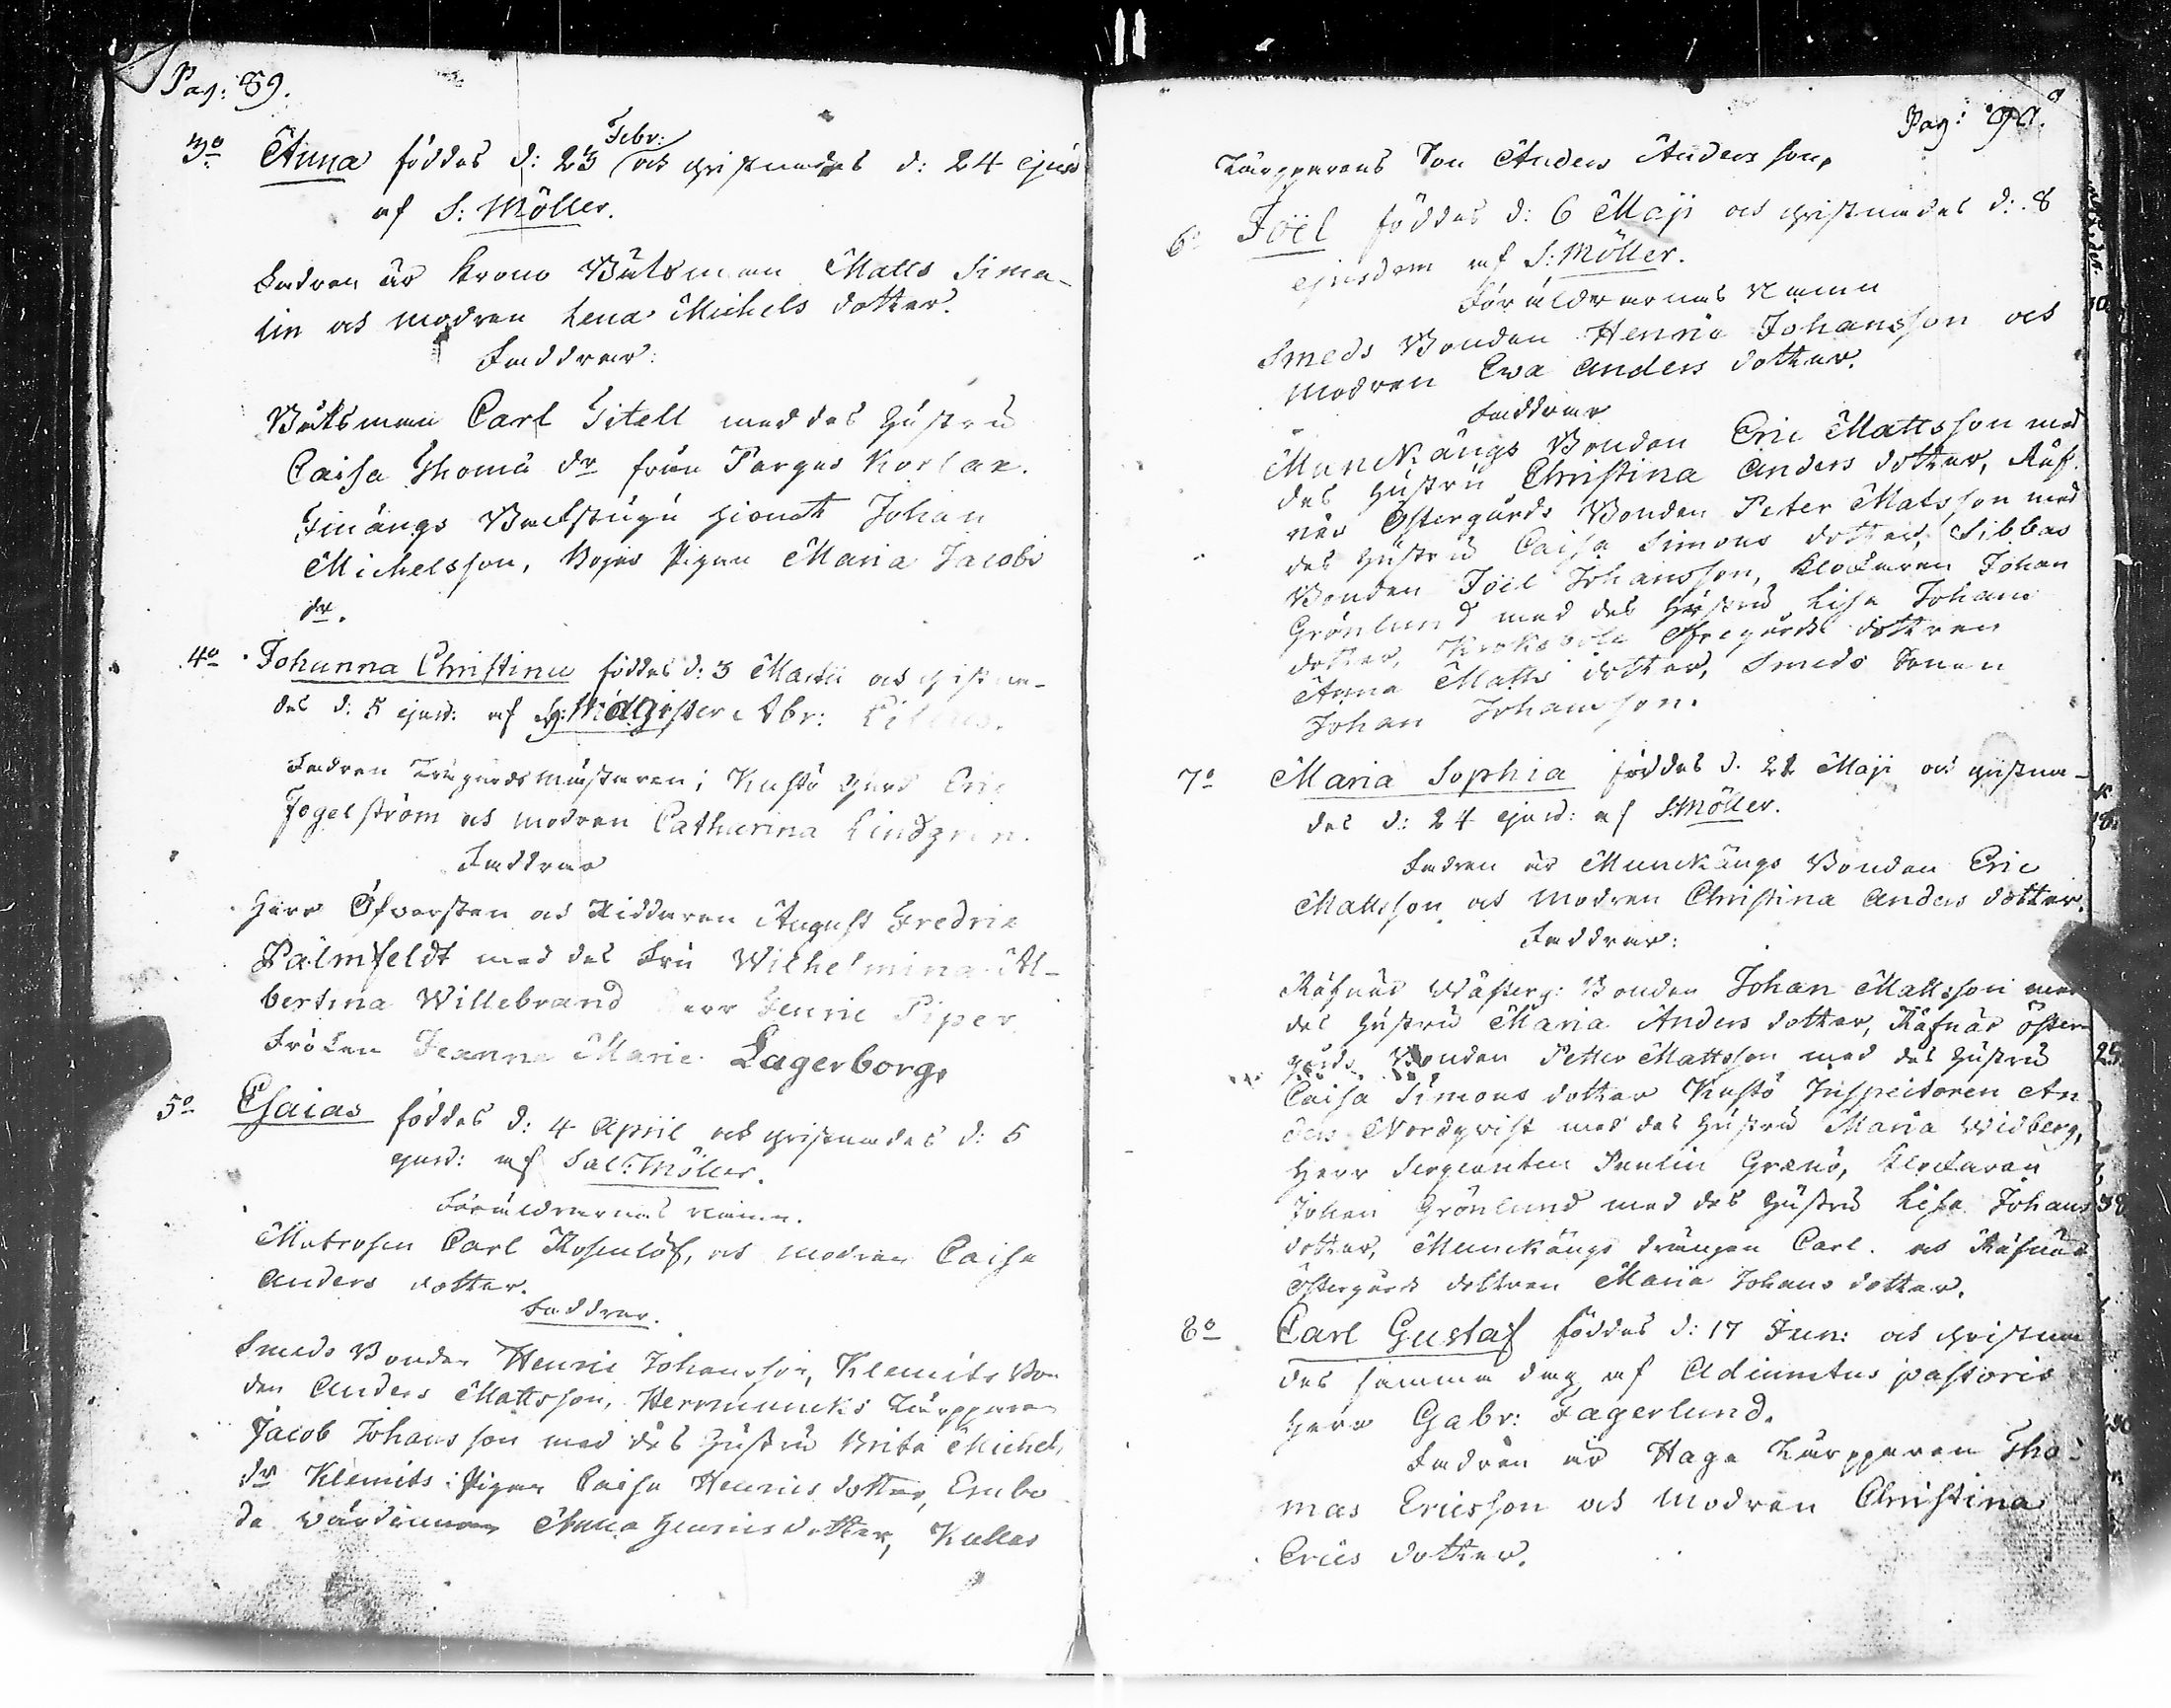 Pag: 89.
3o Anna föddes d: 23 Febr: och christnades d: 24 ejusd
af S: Möller.
Fadren är Krono Båtsman Matts Sima-
lin och modren Lena Michels dotter.
Faddrar:
Båtsman Carl Sitell med des hustru
Caisa Thomæ dr från Pargas
Finängs Backstugu hionet Johan
Michelsson, Pigan Maria Jacobs
dr.
4o Johanna Christina föddes d: 3 Martii och christna-
des d: 5 ejusd: af H: Magister Abr:
Fadren Trägårds Mästaren i Kustö Gård Eric
Fogelström och modren Catharina Lindgren.
Faddrar
Herr Öfversten och Riddaren August Fredric
Palmfeldt med des Fru Wilhelmina Al-
bertina Willebrand Herr Henric Piper
Fröken Jeanne Marie Lagerborg.
5o Esaias föddes d: 4 April och christnades d: 5
ejusd: af Sal: Möller.
Föräldrarnas namn.
Matrosen Carl Rosenlöf, och modren Caisa
Anders dotter.
Faddrar.
Smeds Bonden Henric Johansson, Klemits Bon
den Anders Mattsson, Torpparen
Jacob Johansson med des hustru Brita Michels
dr Klemits Pigan Caisa Henrics dotter, Embo
da värdinnan Anna Henrics dotter, Kullas
Pag: 90.
Torpparens Son Anders Andersson.
6o Joël föddes d: 6 Maji och christnades d: 8
ejusdem af S: Möller.
Föräldrarnas Namn
Smeds Bonden Henric Johansson och
modren Eva Anders dotter.
Faddrar
Munckängs Bonden Eric Mattsson med
des hustru Christina Anders dotter, Räf-
näs Östergårds Bonden Peter Matsson med
des hustru Caisa Simons dotter, Sibbas
Bonden Joël Johansson, Klockaren Johan
Grönlund med des hustru Lisa Johans
dotter, dottren
Anna Matts dotter, Smeds Sonen
Johan Johansson.
7o Maria Sophia föddes d. 22 Maji och christna-
des d: 24 ejusd: af S: Möller.
Fadren är Munckängs Bonden Eric
Mattsson och modren Christina Anders dotter.
Faddrar:
Räfnäs Wästerg: Bonden Johan Mattsson med
des hustru Maria Anders dotter, Räfnäs Öster
gårds Bonden Petter Mattsson med des hustru
Caisa Simons dotter Kustö Inspectoren An-
ders Nordqvist med des hustru Maria Widberg,
Herr Sergeanten Paulin Grænö, Klockaren
Johan Grönlund med des hustru Lisa Johans
dotter, Munckängs drängen Carl och Räfnäs
Östergårds dottren Maria Johans dotter.
8o Carl Gustaf föddes d: 17 Jun: och christna
des samma dag af Adiunctus pastoris
Herr Gabr: Fagerlund.
Fadren är Haga Torpparen Tho-
mas Ericsson och Modren Christina
Erics dotter.